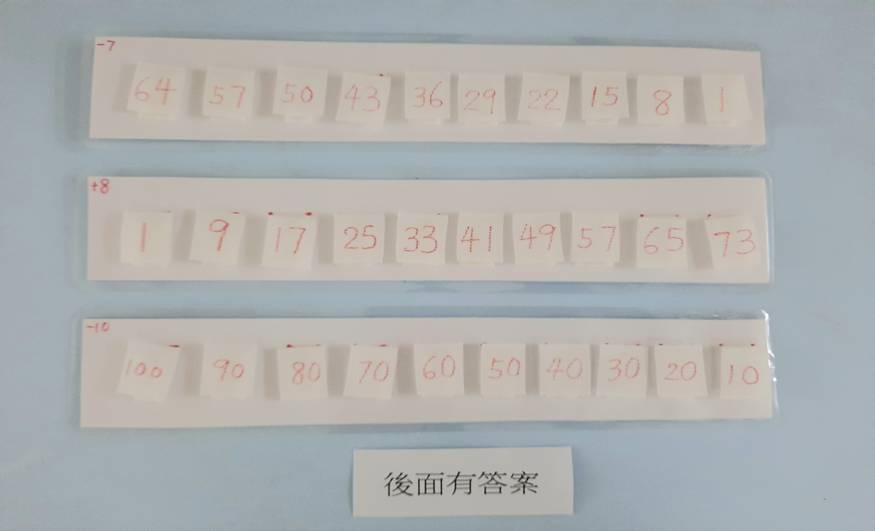 -7
64 57 50 43 36 29 22 15 8 1
+8
1 9 17 25 33 41 49 57 65 73
-10
100 90 80 70 60 50 40 30 20 10
後面有答案